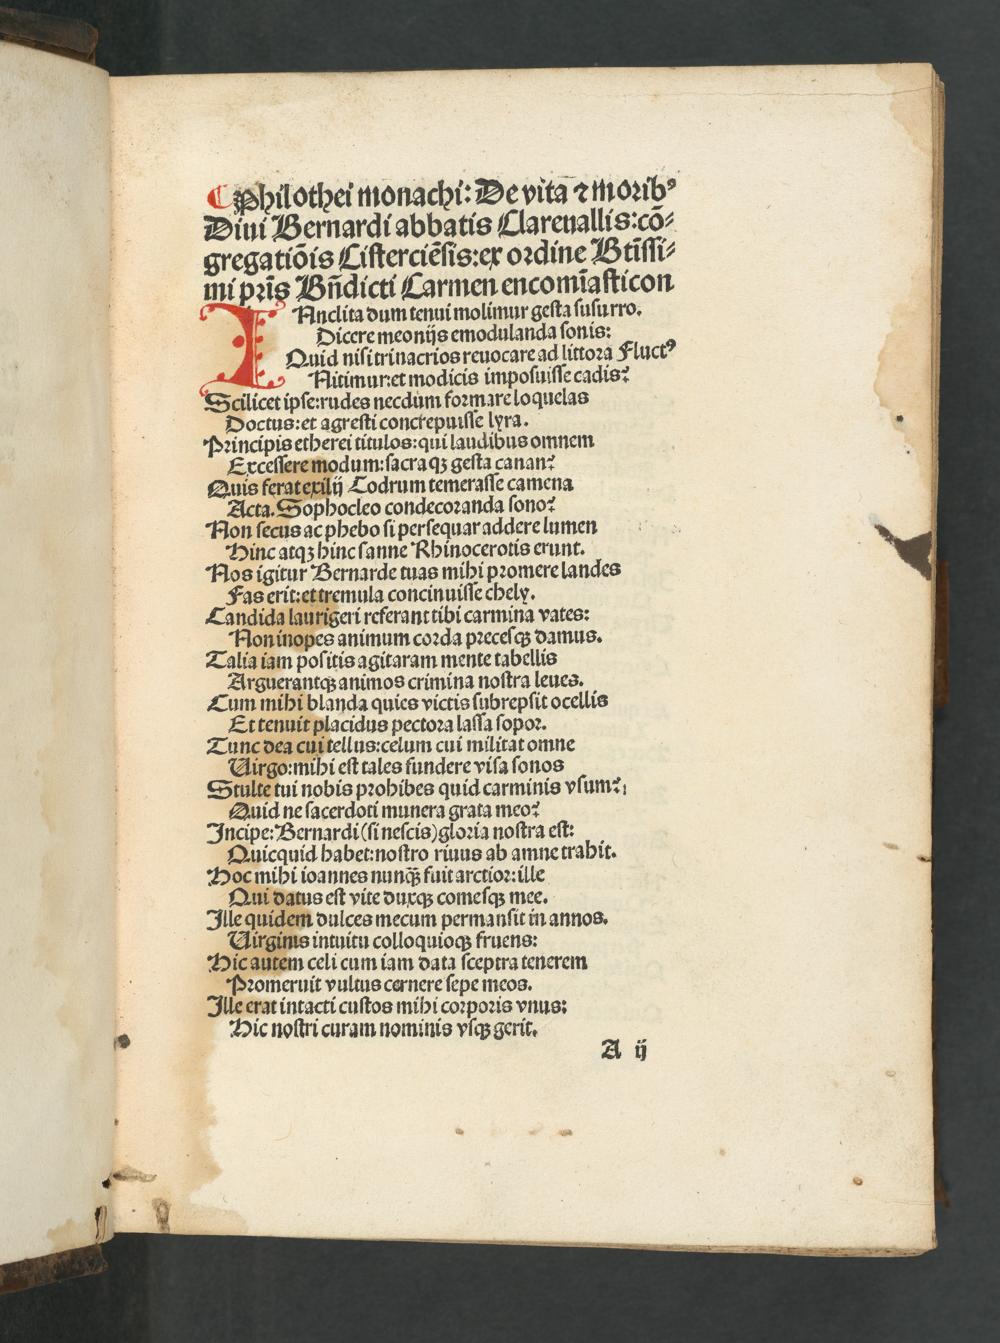 ¶Philothei monachi: De vita ⁊ moribꝰ
Diui Bernardi abbatis Clareuallis: cō-
gregatiōis Cisterciēsis: ex ordine Btissi-
mi pris Bñdicti Carmen encomiasticon
INclita dum tenui molimur gesta susurro.
Dicere meonijs emodulanda sonis:
Quid nisi trinacrios reuocare ad littora Fluctꝰ
Nitimur: et modicis imposuisse cadis?
Scilicet ipse: rudes necdum formare loquelas
Doctus: et agresti concrepuisse lyra.
Principis etherei titulos: qui laudibus omnem
Excessere modum: sacra qꝫ gesta canan?
Quis ferat exilij Codrum temerasse camena
Acta. Sophocleo condecoranda sono?
Non secus ac phebo si persequar addere lumen
Hinc atqꝫ hinc sanne Rhinocerotis erunt.
Nos igitur Bernarde tuas mihi promere landes
Fas erit: et tremula concinuisse chely.
Candida laurigeri referant tibi carmina vates:
Non inopes animum corda precesqꝫ damus.
Talia iam positis agitaram mente tabellis
Arguerantqꝫ animos crimina nostra leues.
Cum mihi blanda quies victis subrepsit ocellis
Et tenuit placidus pectora lassa sopor.
Tunc dea cui tellus: celum cui militat omne
Uirgo: mihi est tales fundere visa sonos
Stulte tui nobis prohibes quid carminis vsum?
Quid ne sacerdoti munera grata meo?
Incipe: Bernardi (si nescis) gloria nostra est:
Quicquid habet: nostro riuus ab amne trahit.
Hoc mihi ioannes nunqꝫ̄ fuit arctior: ille
Qui datus est vite duxqꝫ comesqꝫ mee.
Ille quidem dulces mecum permansit in annos.
Uirginis intuitu colloquioqꝫ fruens:
Hic autem celi cum iam data sceptra tenerem
Promeruit vultus cernere sepe meos.
Ille erat intacti custos mihi corporis vnus:
Hic nostri curam nominis vsqꝫ gerit.
A ij